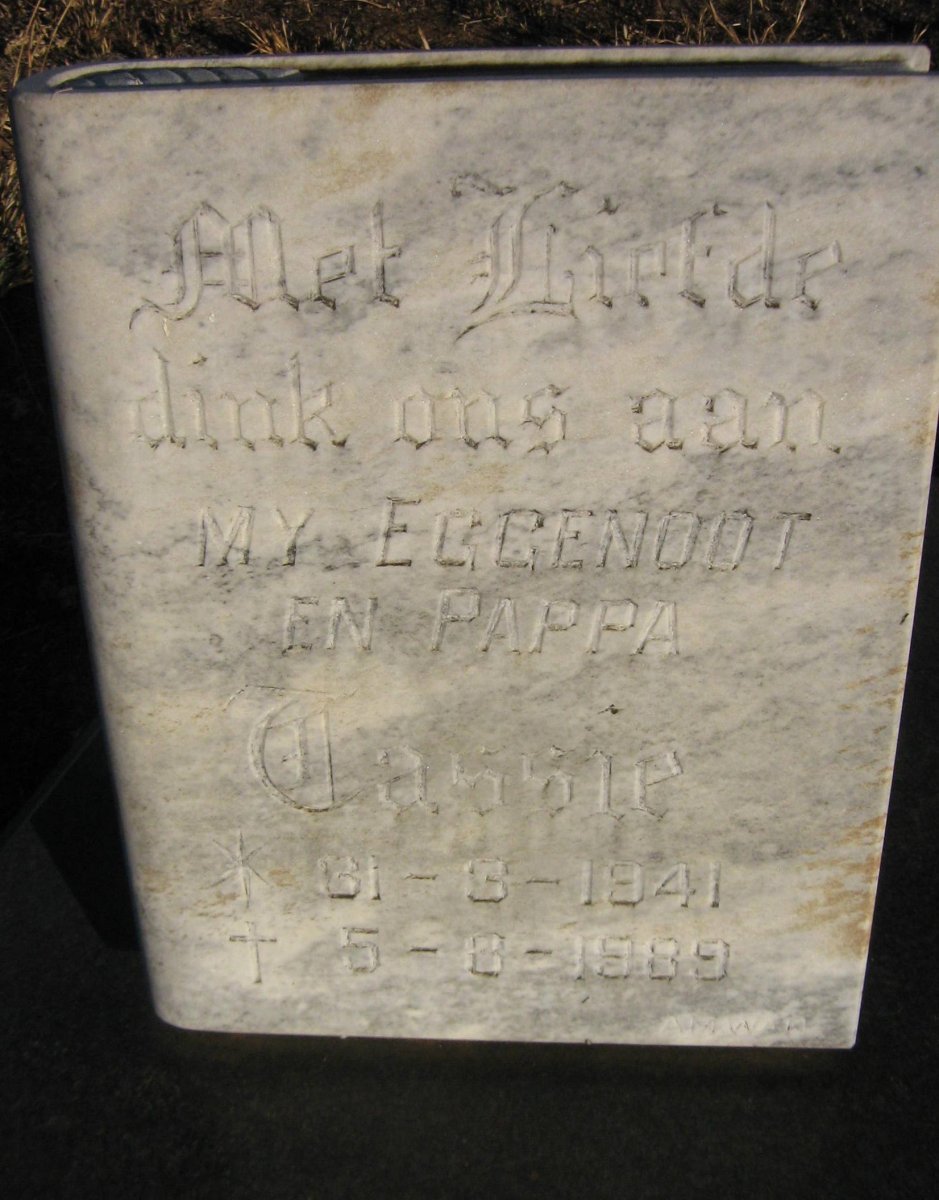 Met Liefde
dink ons aan
MY EGGENOOT
EN PAPPA
Tassie
31-3-1941
5-8-1989